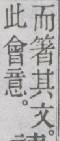 而箸其文。
此會意。